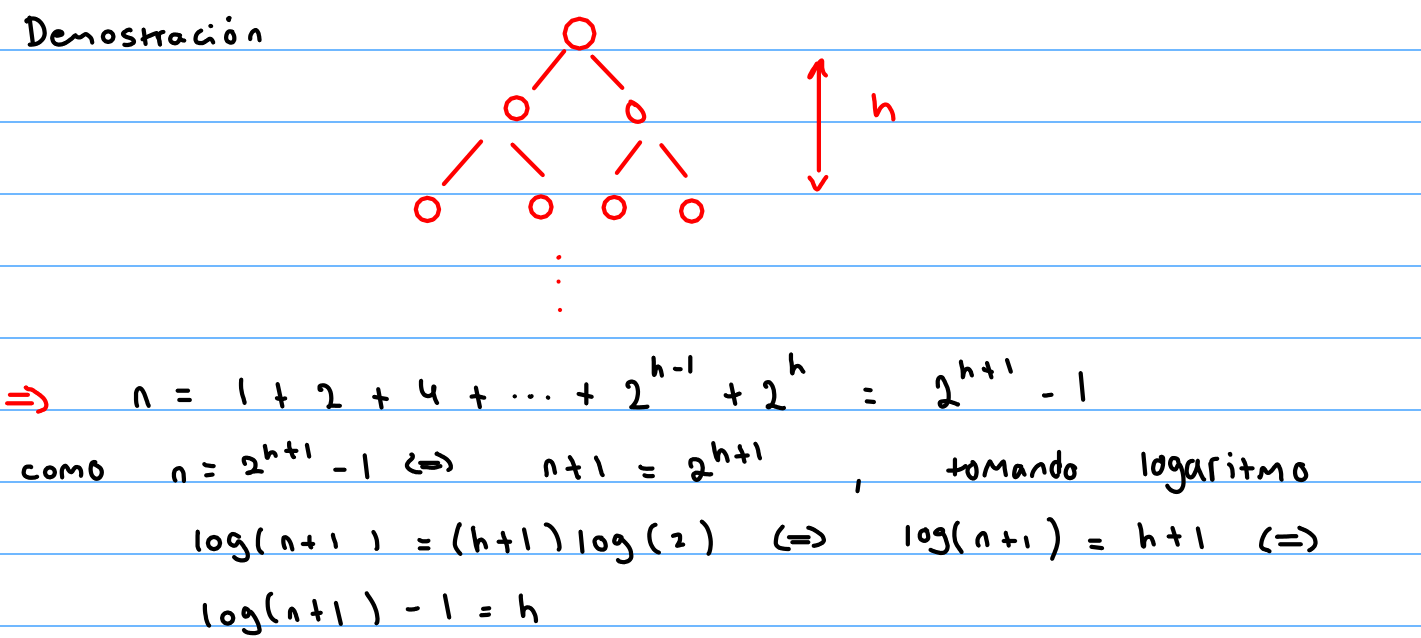 Demostración
h
⇒ n = 1 + 2 + 4 + ... + 2^{h-1} + 2^h = 2^{h+1} - 1
como n = 2^{h+1} - 1 ⇔ n+1 = 2^{h+1} , tomando logaritmo
log(n+1) = (h+1) log(2) ⇔ log(n+1) = h+1 ⇔
log(n+1) - 1 = h